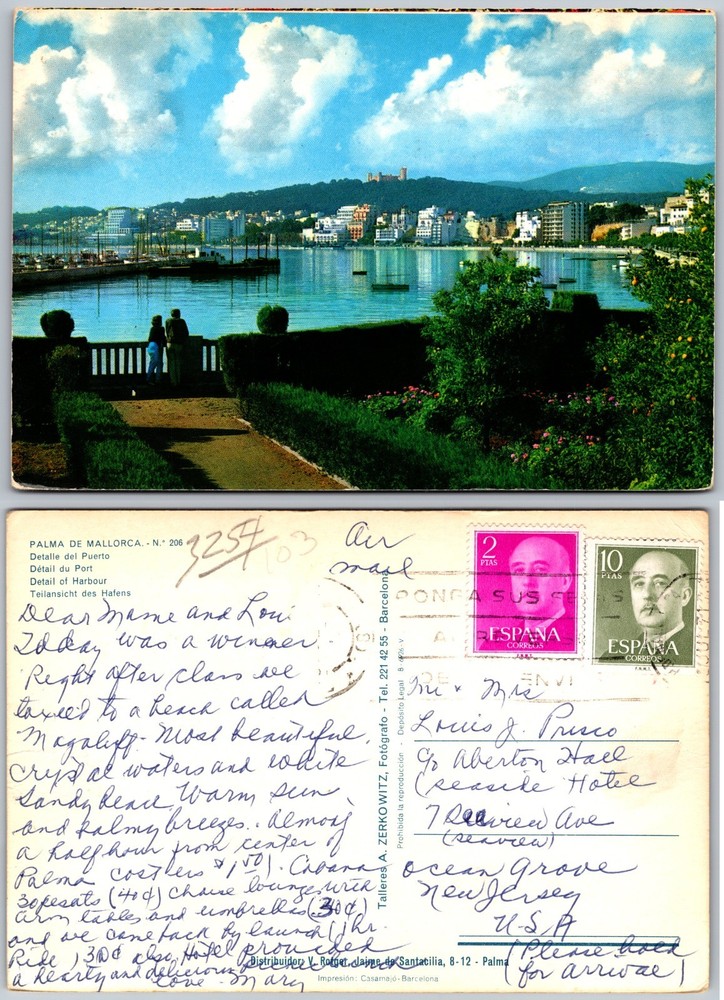 PALMA DE MALLORCA. - N.º 206
Detalle del Puerto
Détail du Port
Detail of Harbour
Teilansicht des Hafens
3254
103
Air
mail
2
PTAS
ESPAÑA
CORREOS
10
PTAS
ESPAÑA
CORREOS
PONGA SUS SEÑAS
ENVI
Dear Mame and Lou
Today was a winner
Right after class we
taxied to a beach called
Magaluff - Most beautiful,
crystal waters and white
sandy beach warm sun,
and palmy breezes. Almost
a half hour from center of
Palma cost us $1.50). Cabana
30 pesats (40¢) Chaise lounge with
arm tables and umbrellas (30¢)
and we came back by launch (1 hr.
Ride) 30¢ also. Hotel provided
a hearty and delicious picnic
Love - Mary
Talleres A. ZERKOWITZ, Fotógrafo - Tel. 221 42 55 - Barcelona
Prohibida la reproducción - Depósito Legal B.
Mr & Mrs
Louis J. Prisco
c/o Aberton Hall
(seaside Hotel
7 Seaview Ave
(seaview)
Ocean Grove
New Jersey
U.S.A
(Please hold
for arrival)
Distribuidor: V. Rotger, Jaime de Santacilia, 8-12 - Palma
Impresión: Casamajó-Barcelona